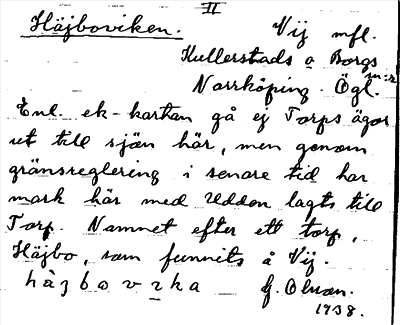 II
Häjboviken. Vij mfl.
Kullerstads o Borgs sn:r
Norrköping. Ögl.
Enl. ek-kartan gå ej Torps ägor
ut till sjön här, men genom
gränsreglering i senare tid har
mark här med Udden lagts till
Torp. Namnet efter ett torp,
Häjbo, som funnits å Vij.
hàjbovika G. Olsson.
1938.